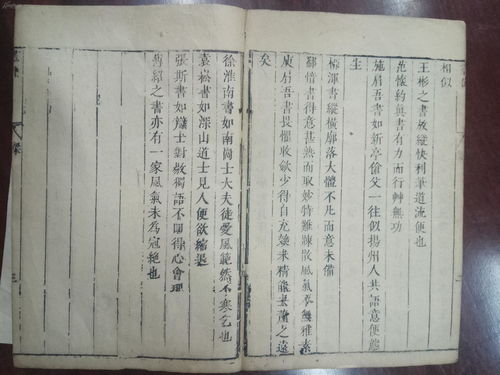 相似
王彬之書放縱快利筆道流便也
范懷約真書有力而行艸無功
施肩吾書如新亭傖父一往似揚州人共語意便態
生
柳渾書縱橫廓落大體不凡而意未備
郗愔書得意甚熟而取妙特難疎散風氣不無雅素
庾肩吾書畏懼收斂少得自充幾未精能去蕭之遠
矣
徐淮南書如南岡士大夫徒愛風範然不寒乞也
袁崧書如深山道士見人便欲縮退
張斯書如辯士對敵獨語不回得心會理
之書亦有一家風氣未為冠絕也